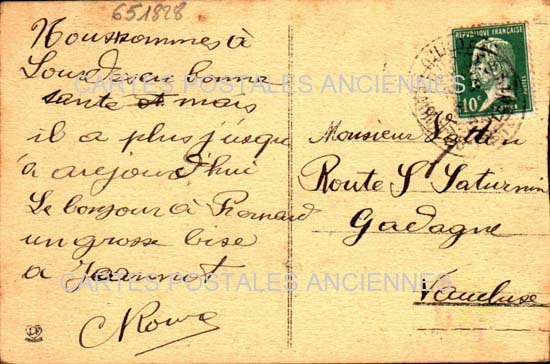 651828
Nous sommes à
Lourdes en bonne
santé et mais
il a plus jusqu
à aujourd'hui
Le bonjour à Fernand
un grosse bise
a Jeannot
REPUBLIQUE FRANÇAISE
10
POSTES
Monsieur
Route St Saturnin
Gadagne
Vaucluse
CARTES POSTALES ANCIENNES
CARTES POSTALES ANCIENNES